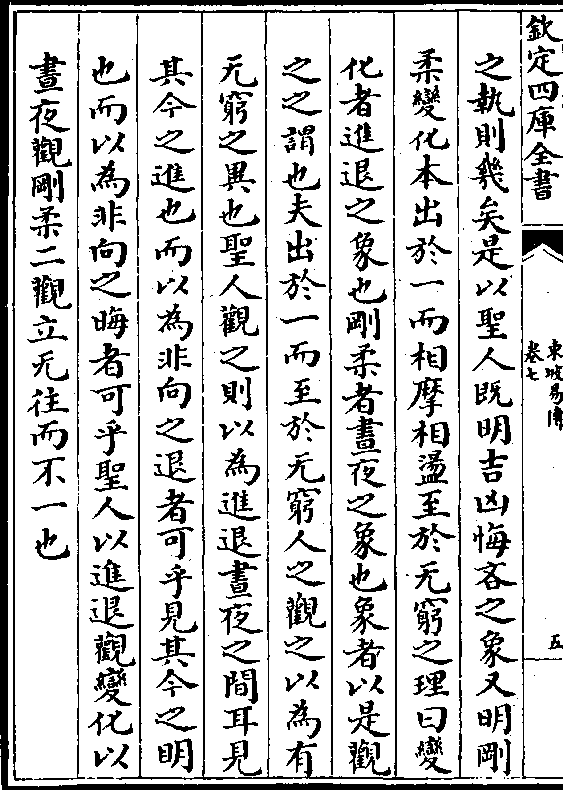 欽定四庫全書
東坡易傳
卷七
五
之執則幾矣是以聖人既明吉凶悔吝之象又明剛
柔變化本出於一而相摩相盪至於无窮之理曰變
化者進退之象也剛柔者晝夜之象也象者以是觀
之之謂也夫出於一而至於无窮人之觀之以為有
无窮之異也聖人觀之則以為進退晝夜之間耳見
其今之進也而以為非向之退者可乎見其今之明
也而以為非向之晦者可乎聖人以進退觀變化以
晝夜觀剛柔二觀立无往而不一也